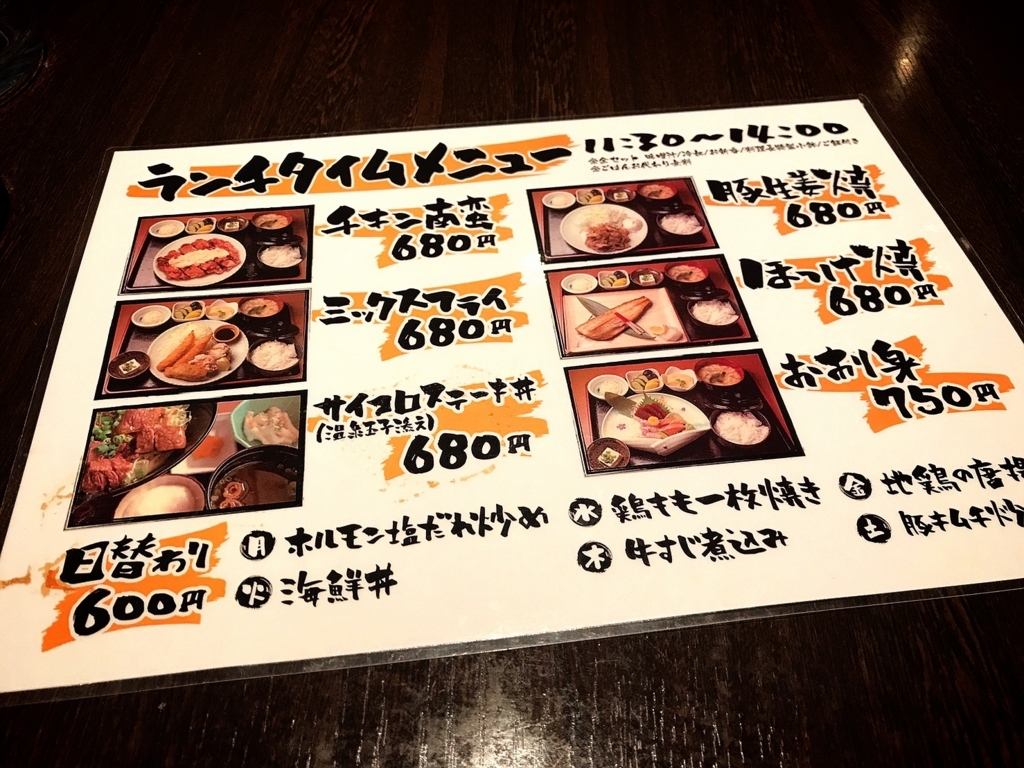 ランチタイムメニュー
11:30～14:00
※全セット 味噌汁/冷奴/お新香/料理長特製小鉢/ご飯付き
※ごはんお代わり無料
チキン南蛮
680円
ミックスフライ
680円
サイコロステーキ丼
(温泉玉子添え)
680円
豚生姜焼
680円
ほっけ焼
680円
お刺身
750円
日替わり
600円
月 ホルモン塩だれ炒め
火 海鮮丼
水 鶏もも一枚焼き
木 牛すじ煮込み
金 地鶏の唐揚
土 豚キムチ炒